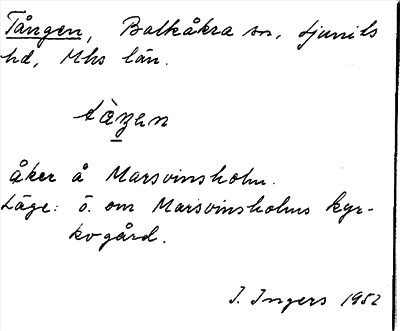 Tången, Balkåkra sn, Ljunits
hd, Mhs län.
åker å Marsvinsholm.
Läge: ö. om Marsvinsholms kyr-
kogård.
I. Ingers 1952